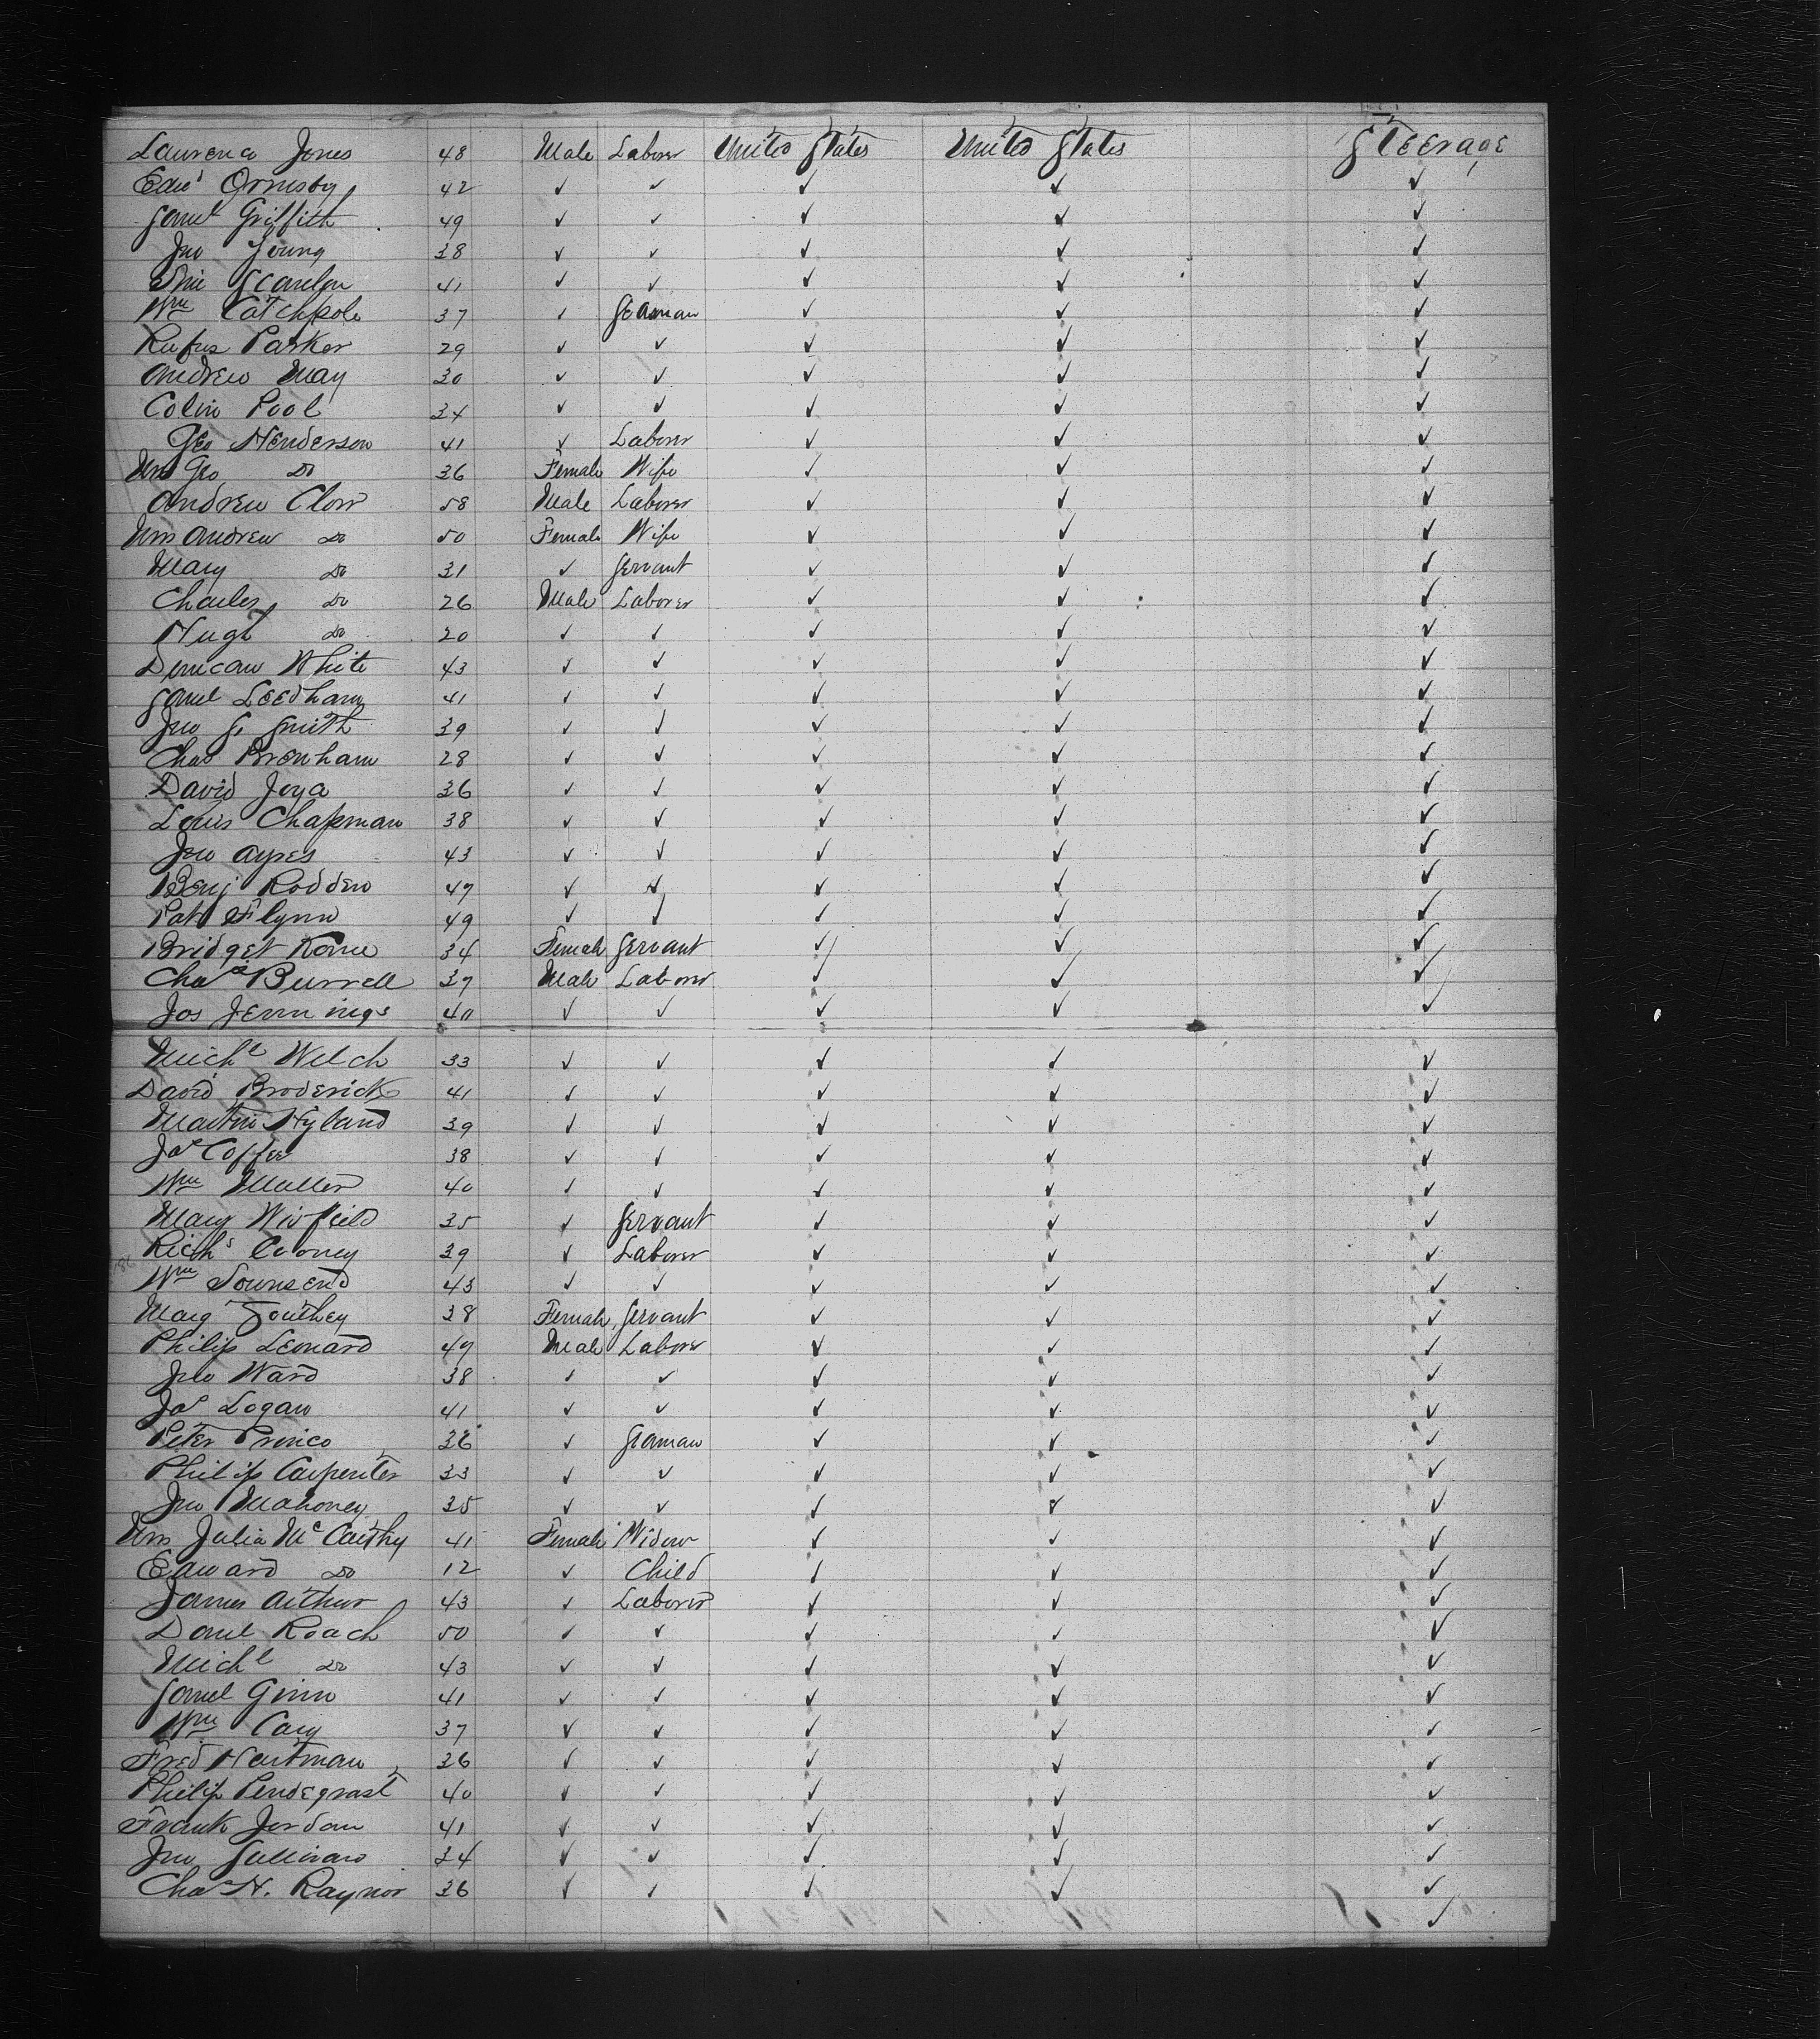 Laurence Jones 48 Male Laborer United States United States Steerage
Edwd Ormsby 42 ✓ ✓ ✓ ✓ ✓
Saml Griffith 49 ✓ ✓ ✓ ✓ ✓
Jno Young 38 ✓ ✓ ✓ ✓ ✓
Scanlon 41 ✓ ✓ ✓ ✓ ✓
Wm Catchpole 37 ✓ Seaman ✓ ✓ ✓
Rufus Parker 29 ✓ ✓ ✓ ✓ ✓
Andrew May 30 ✓ ✓ ✓ ✓ ✓
Colin Pool 34 ✓ ✓ ✓ ✓ ✓
Geo Henderson 41 ✓ Laborer ✓ ✓ ✓
Mrs Geo Do 36 Female Wife ✓ ✓ ✓
Andrew Clow 58 Male Laborer ✓ ✓ ✓
Mrs Andrew Do 50 Female Wife ✓ ✓ ✓
Mary Do 31 ✓ Servant ✓ ✓ ✓
Charles Do 26 Male Laborer ✓ ✓ ✓
Hugh Do 20 ✓ ✓ ✓ ✓ ✓
Duncan White 43 ✓ ✓ ✓ ✓ ✓
Saml Leedham 41 ✓ ✓ ✓ ✓ ✓
Jno G. Smith 39 ✓ ✓ ✓ ✓ ✓
Chas Brenham 28 ✓ ✓ ✓ ✓ ✓
David Joya 36 ✓ ✓ ✓ ✓ ✓
Louis Chapman 38 ✓ ✓ ✓ ✓ ✓
Jno Ayres 43 ✓ ✓ ✓ ✓ ✓
Benj Rodden 47 ✓ ✓ ✓ ✓ ✓
Pat Flynn 49 ✓ ✓ ✓ ✓ ✓
Bridget Kane 34 Female Servant ✓ ✓ ✓
Chas Burrell 37 Male Laborer ✓ ✓ ✓
Jos Jennings 40 ✓ ✓ ✓ ✓ ✓
Michl Welch 33 ✓ ✓ ✓ ✓ ✓
David Broderick 41 ✓ ✓ ✓ ✓ ✓
Martin Hyland 39 ✓ ✓ ✓ ✓ ✓
Jas Coffee 38 ✓ ✓ ✓ ✓ ✓
Wm Muller 40 ✓ ✓ ✓ ✓ ✓
Mary Winfield 35 ✓ Servant ✓ ✓ ✓
Richd Cooney 39 ✓ Laborer ✓ ✓ ✓
Wm Townsend 43 ✓ ✓ ✓ ✓ ✓
Marg Southey 38 Female Servant ✓ ✓ ✓
Philip Leonard 47 Male Laborer ✓ ✓ ✓
Jno Ward 38 ✓ ✓ ✓ ✓ ✓
Jas Logan 41 ✓ ✓ ✓ ✓ ✓
Peter Prinico 36 ✓ Seaman ✓ ✓ ✓
Philip Carpenter 33 ✓ ✓ ✓ ✓ ✓
Jno Mahoney 35 ✓ ✓ ✓ ✓ ✓
Mrs Julia McCarthy 41 Female Widow ✓ ✓ ✓
Edward Do 12 ✓ Child ✓ ✓ ✓
James Arthur 43 ✓ Laborer ✓ ✓ ✓
Danl Roach 50 ✓ ✓ ✓ ✓ ✓
Michl Do 43 ✓ ✓ ✓ ✓ ✓
Saml Ginn 41 ✓ ✓ ✓ ✓ ✓
Wm Cary 37 ✓ ✓ ✓ ✓ ✓
Fred Hartman 36 ✓ ✓ ✓ ✓ ✓
Philip Pendegrast 40 ✓ ✓ ✓ ✓ ✓
Frank Jordan 41 ✓ ✓ ✓ ✓ ✓
Jno Sullivan 34 ✓ ✓ ✓ ✓ ✓
Chas H. Raynor 36 ✓ ✓ ✓ ✓ ✓
✓